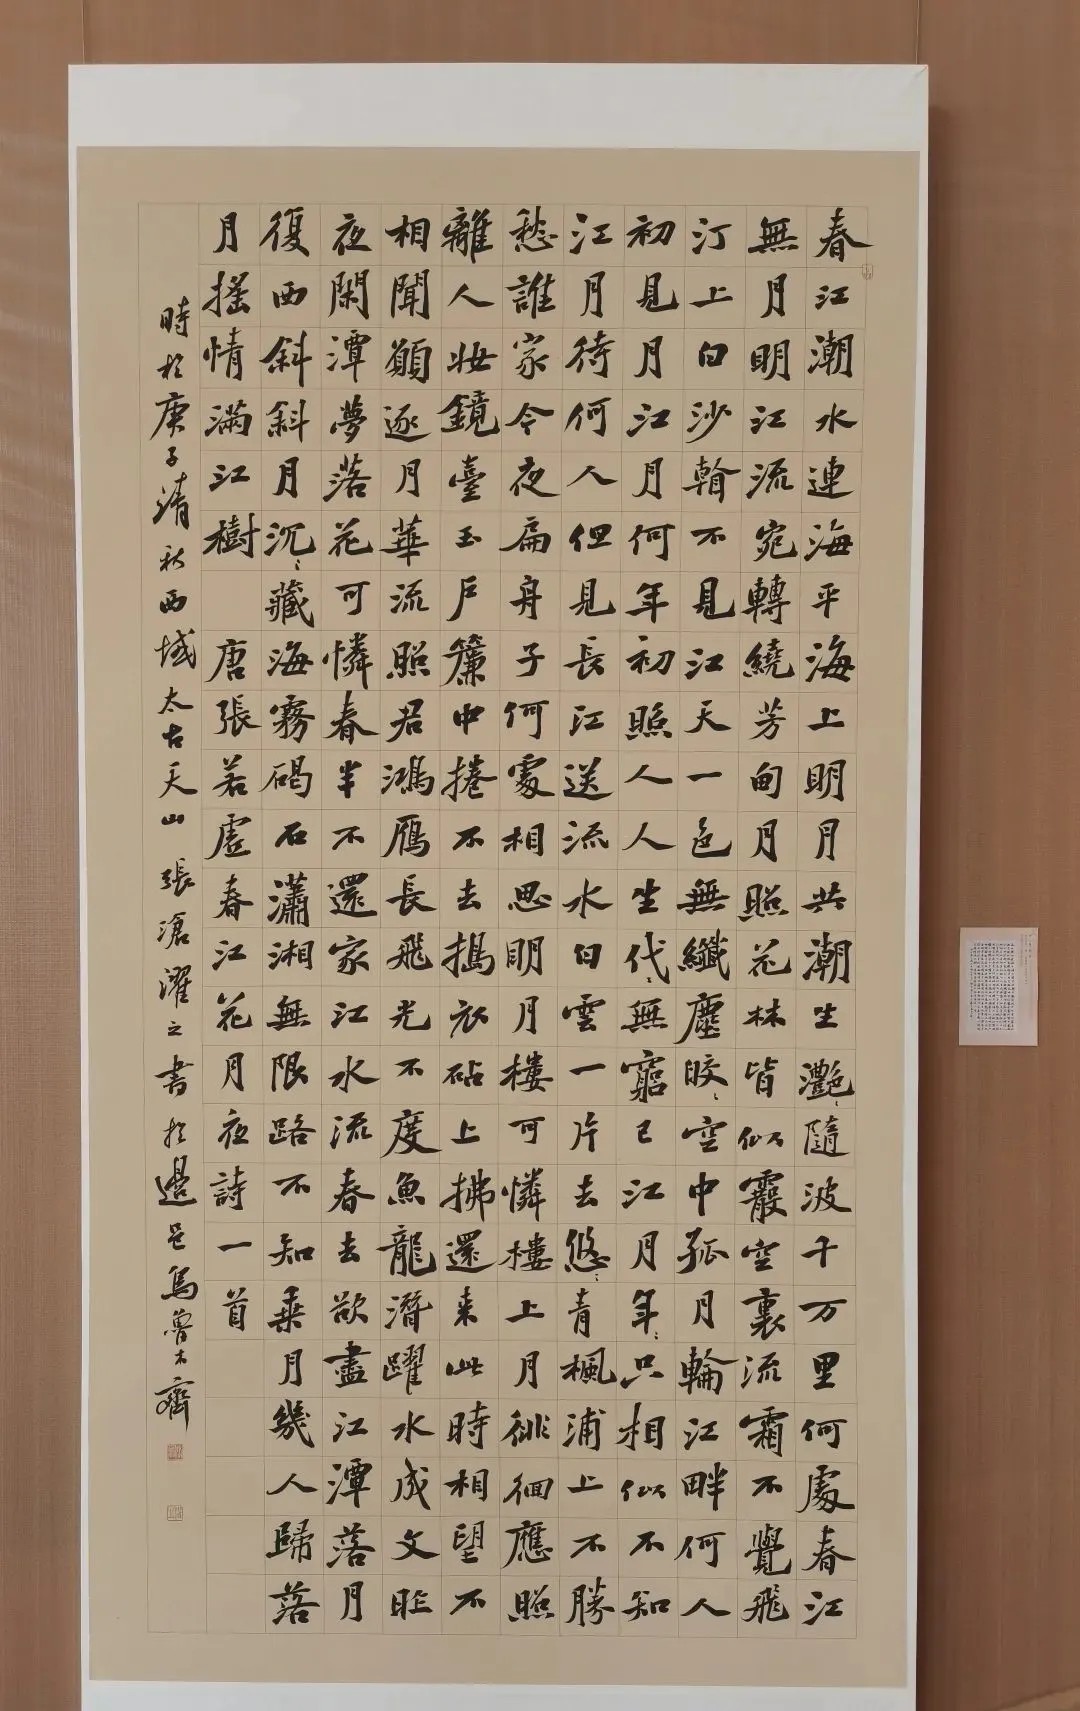 春江潮水連海平海上明月共潮生灩〻隨波千万里何處春江
無月明江流宛轉繞芳甸月照花林皆似霰空裏流霜不覺飛
汀上白沙看不見江天一色無纖塵皎〻空中孤月輪江畔何人
初見月江月何年初照人人生代〻無窮已江月年〻只相似不知
江月待何人但見長江送流水白雲一片去悠〻青楓浦上不勝
愁誰家今夜扁舟子何處相思明月樓可憐樓上月徘徊應照
離人妝鏡臺玉戶簾中捲不去搗衣砧上拂還來此時相望不
相聞願逐月華流照君鴻雁長飛光不度魚龍潛躍水成文昨
夜閑潭夢落花可憐春半不還家江水流春去欲盡江潭落月
復西斜斜月沉〻藏海霧碣石瀟湘無限路不知乘月幾人歸落
月搖情滿江樹 唐張若虛春江花月夜詩一首
時於庚子清秋西域太古天山 張滄濯之書於邊邑烏魯木齊